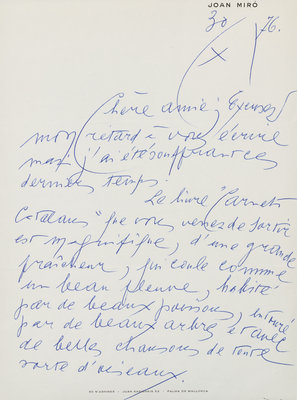 JOAN MIRÓ
30/X/76.
Chère amie, Excusez
mon retard à vous écrire
mais j'ai été souffrant ces
derniers temps.
Le livre "Carnets
Catalans" que vous venez de sortir
est magnifique, d'une grande
fraîcheur, qui coule comme
un beau fleuve, habité
par de beaux poissons, entouré
par de beaux arbres et avec
de belles chansons de toute
sorte d'oiseaux.
SO N'ABRINES · JOAN SARIDAKIS · PALMA DE MALLORCA